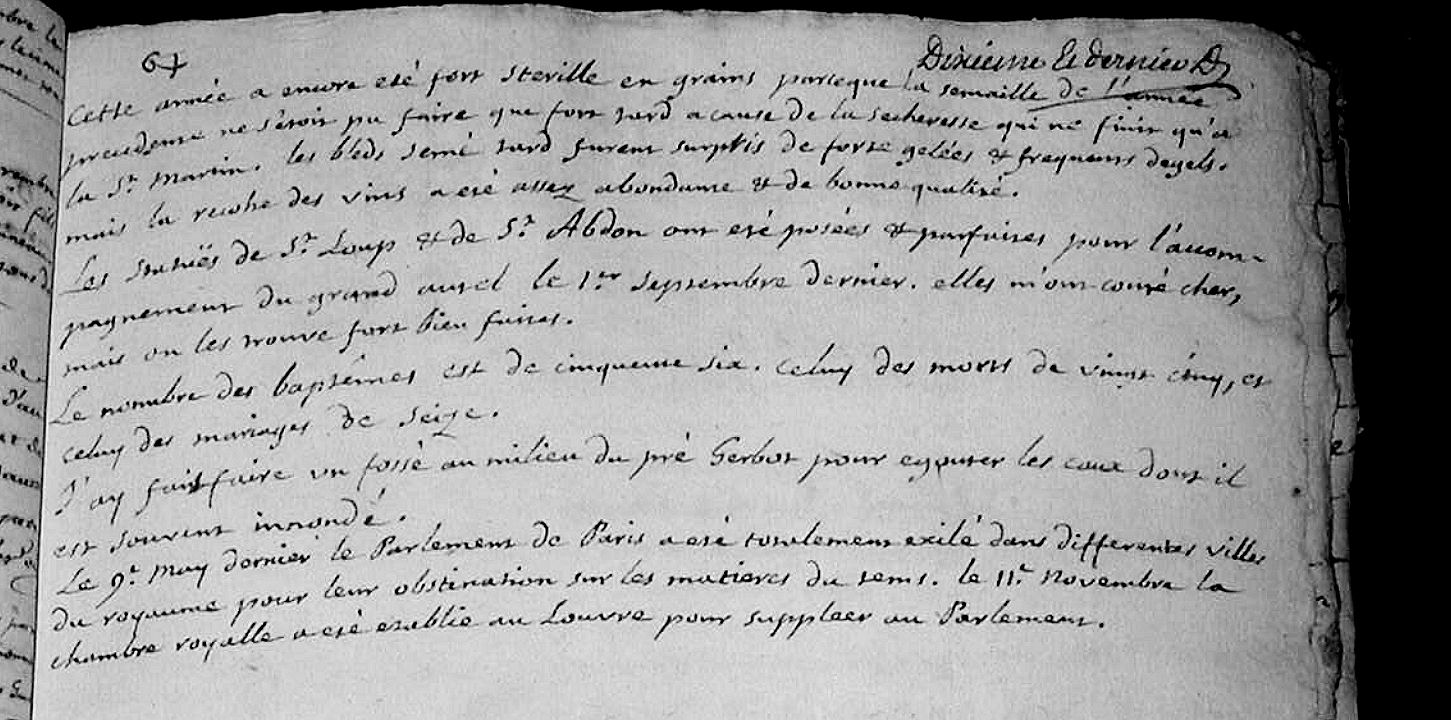 Dixieme et dernier
Cette année a encore eté fort sterille en grains parceque la semaille de l'année
precedente ne s'étoit pu faire que fort tard a cause de la secheresse qui ne finit qu'a
la St. Martin. les bleds semé tard furent surpris de forte gelées & frequents degels.
mais la recolte des vins a eté assez abondante & de bonne qualité.
Les statuës de St. Loup & de St. Abdon ont eté posées & parfaites pour l'accom-
pagnement du grand autel le 1.er septembre dernier. elles m'ont couté cher,
mais on les trouve fort bien faites.
Le nombre des baptêmes est de cinquente six. celuy des morts de vingt cinq, et
celuy des mariages de seize.
J'ay fait faire un fossé au milieu du pré Gerbot pour egouter les eaux dont il
est souvent innondé.
Le 9.e May dernier le Parlement de Paris a eté totalement exilé dans differentes villes
du royaume pour leur obstination sur les matieres du tems. le 11.e Novembre la
chambre royalle a eté etablie au Louvre pour suppleer au Parlement.